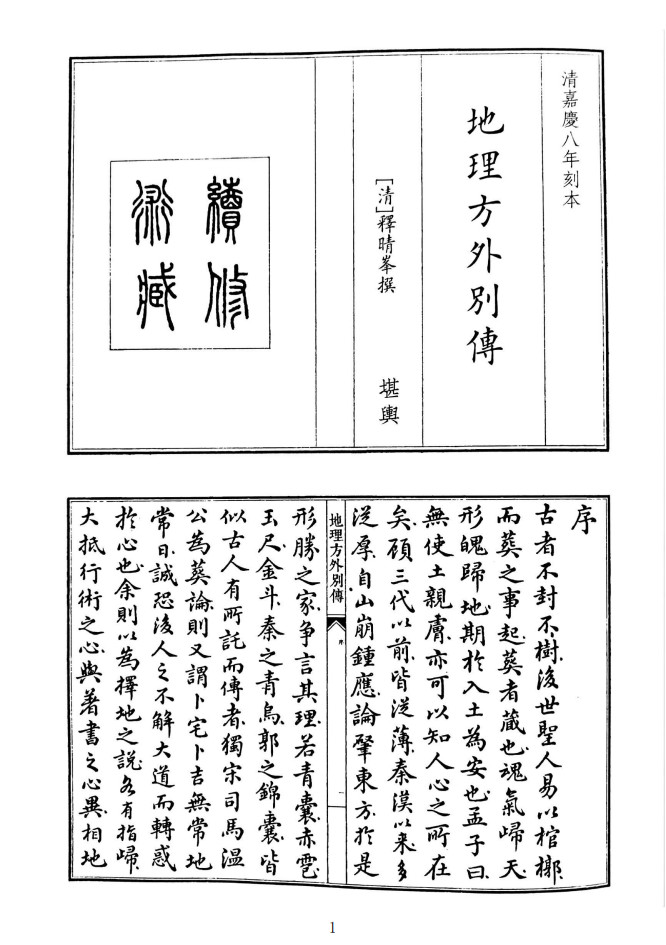 清嘉慶八年刻本
地理方外別傳
[清]釋晴峯撰
堪輿
續修
術藏
序
古者不封不樹後世聖人易以棺槨
而葬之事起葬者蔵也魂氣歸天
形魄歸地期於入土為安也孟子曰
無使土親膚亦可以知人心之所在
矣顧三代以前皆從薄秦漢以来多
從厚自山崩鍾應論肇東方於是
地理方外別傳
序
一
形勝之家争言其理若青囊赤雹
玉尺金斗秦之青烏郭之錦囊皆
似古人有所託而傳者獨宋司馬溫
公為葬論則又謂卜宅卜吉無常地
常日誠恐後人之不解大道而轉惑
於心也余則以為擇地之說各有指歸
大抵行術之心與著書之心異相地
1